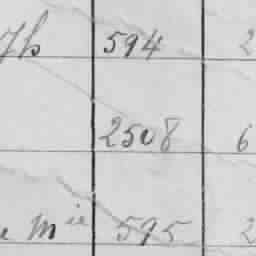 594 2
2508 6
Mie 595 2